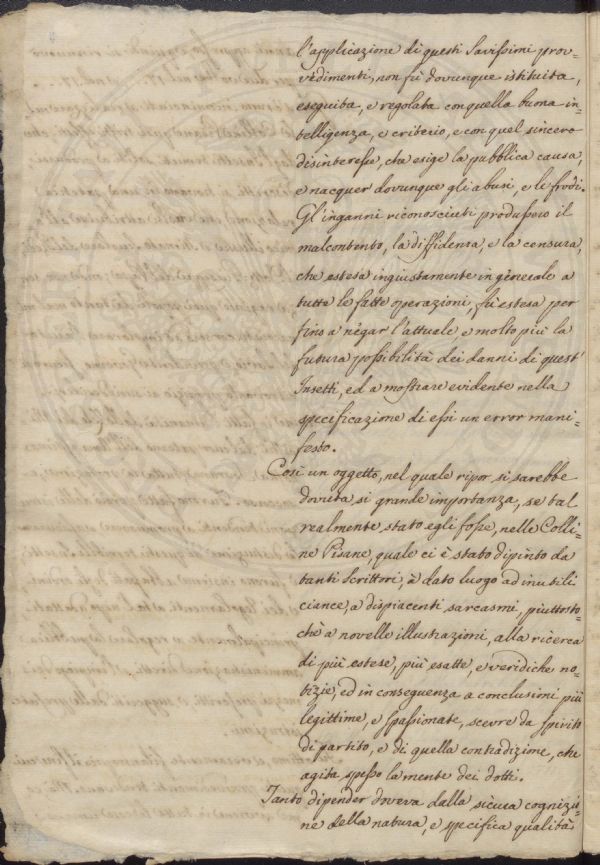 l'applicazione di questi Savissimi prov=
vedimenti, non fù dovunque istituita,
eseguita, e regolata con quella buona in=
telligenza, e criterio, e con quel sincero
disinteresse, che esige la pubblica causa,
e nacquer dovunque gli abusi, e le frodi.
Gl'inganni riconosciuti produssero il
malcontento, la diffidenza, e la censura,
che estesa ingiustamente in generale a
tutte le fatte operazioni, fù estesa per
fino a negar l'attuale, e molto più la
futura possibilità dei danni di quest'
Insetti, ed a mostrare evidente nella
specificazione di essi un error mani=
festo.
Così un oggetto, nel quale ripor si sarebbe
dovuta si grande importanza, se tal
realmente stato egli fosse, nelle Colli=
ne Pisane, quale ci è stato dipinto da
tanti Scrittori, à dato luogo ad inutili
ciance, a dispiacenti sarcasmi, piuttosto=
chè a novelle illustrazioni, alla ricerca
di più estese, più esatte, e veridiche no=
tizie, ed in conseguenza a conclusioni più
legittime, e spassionate, scevre da spirito
di partito, e di quella contradizione, che
agita spesso la mente dei dotti.
Tanto dipender doveva dalla sicura cognizio=
ne della natura, e specifica qualità